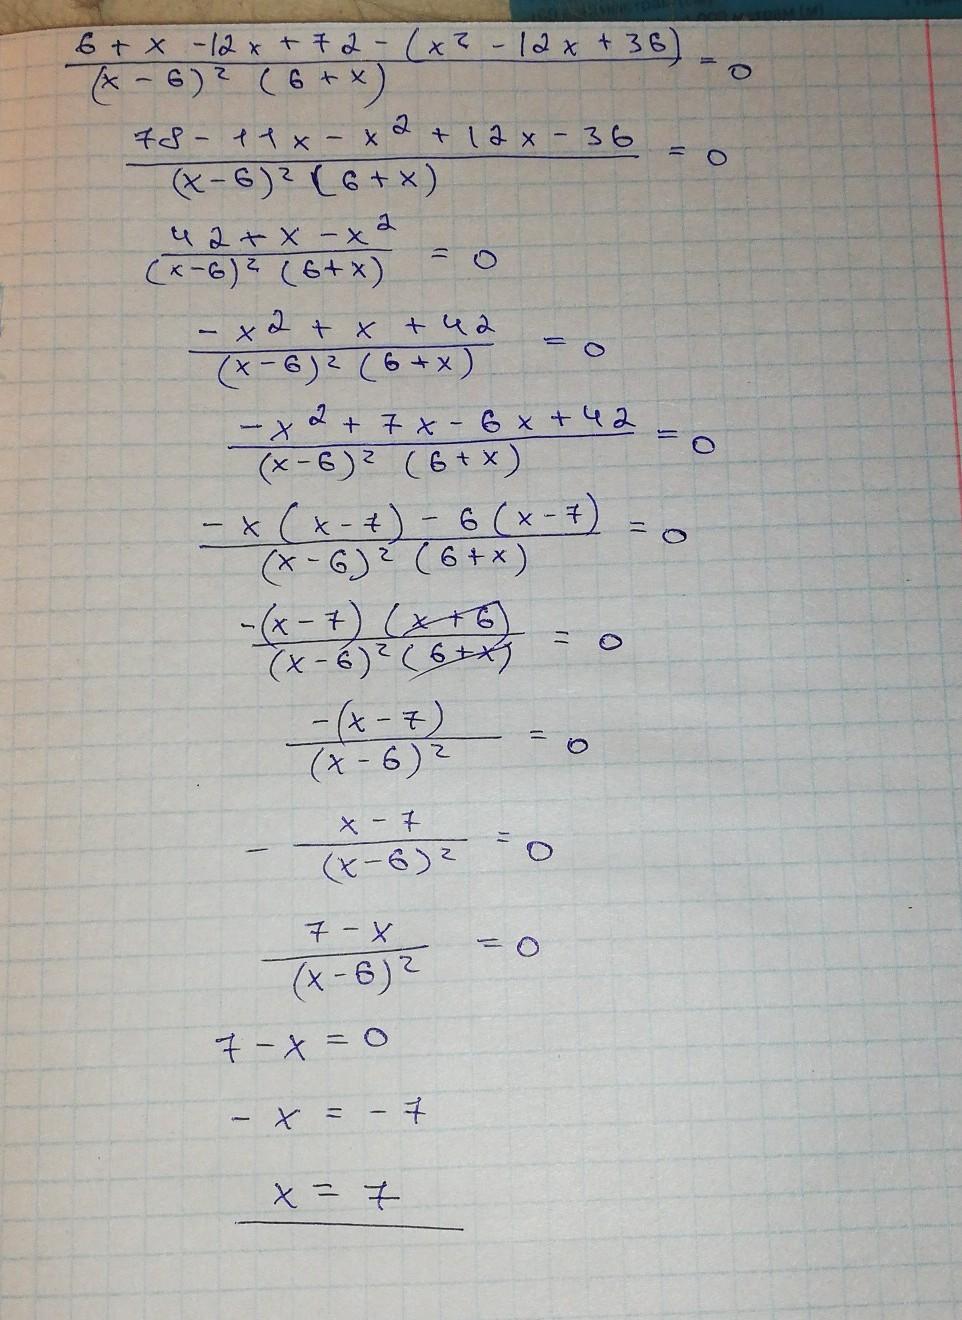 6 + x - 12x + 72 - (x² - 12x + 36) = 0
(x - 6)² (6 + x)
78 - 11x - x² + 12x - 36 = 0
(x - 6)² (6 + x)
42 + x - x² = 0
(x - 6)² (6 + x)
- x² + x + 42 = 0
(x - 6)² (6 + x)
- x² + 7x - 6x + 42 = 0
(x - 6)² (6 + x)
- x (x - 7) - 6 (x - 7) = 0
(x - 6)² (6 + x)
-(x - 7) (x + 6) = 0
(x - 6)² (6 + x)
-(x - 7) = 0
(x - 6)²
- x - 7 = 0
(x - 6)²
7 - x = 0
(x - 6)²
7 - x = 0
- x = - 7
x = 7